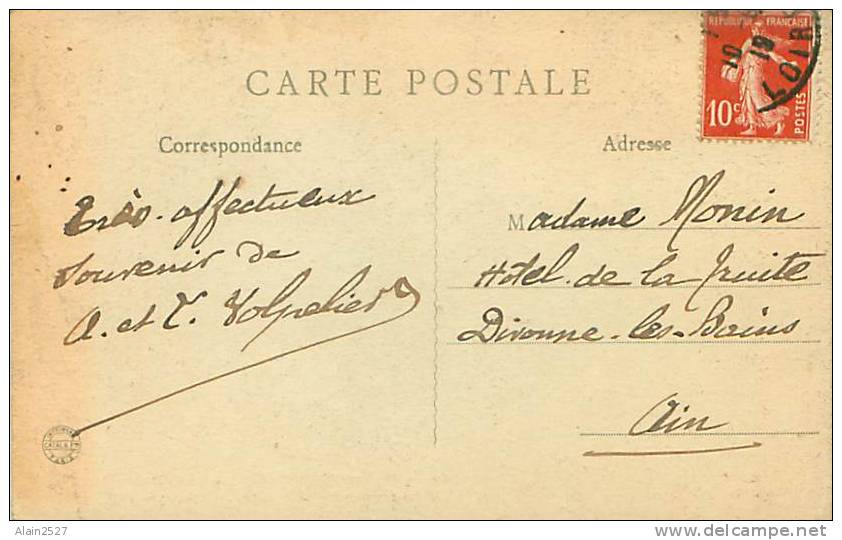 CARTE POSTALE
REPUBLIQUE FRANÇAISE
10c
POSTES
LOIR
Correspondance
Adresse
Très affectueux
souvenir de
A. et T. Volpelier
Madame Monin
Hôtel de la Truite
Divonne-les-Bains
Ain
Alain2527
www.delcampe.net